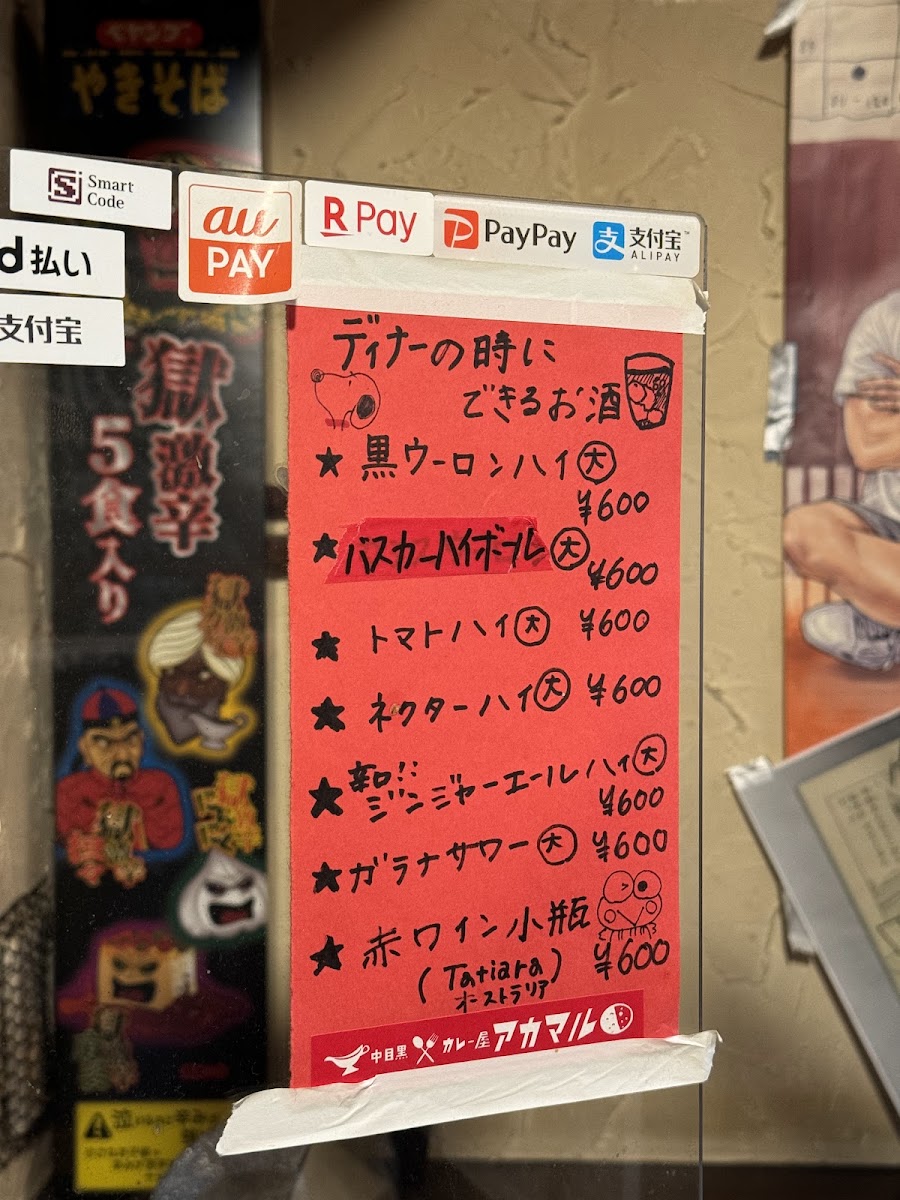 ペヤング
やきそば
獄激辛
5食入り
Smart
Code
d払い
支付宝
au
PAY
R Pay
PayPay
支付宝™
ALIPAY
ディナーの時に
できるお酒
★ 黒ウーロンハイ大
¥600
★ バスカーハイボール大
¥600
★ トマトハイ大 ¥600
★ ネクターハイ大 ¥600
★ 辛口!!
ジンジャーエールハイ大
¥600
★ ガラナサワー大 ¥600
★ 赤ワイン小瓶
¥600
(Tatiara)
オーストラリア
中目黒 カレー屋 アカマル